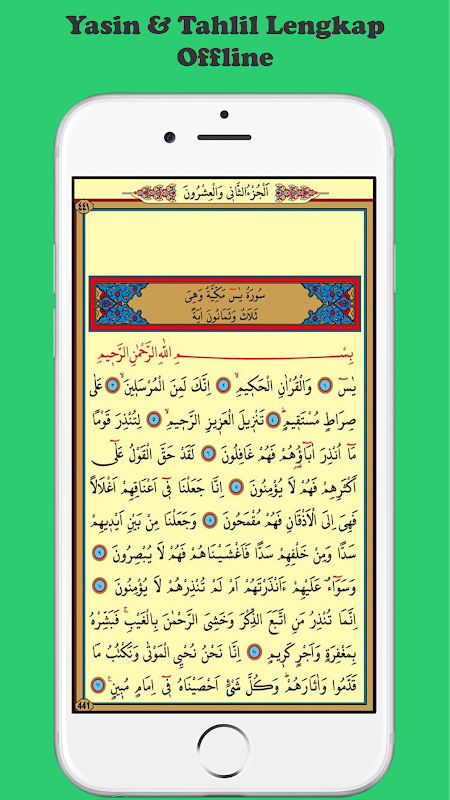 Yasin & Tahlil Lengkap
Offline
اَلْجُزْءُ الثَّانِي وَالْعِشْرُونَ
٤٤١
سُورَةُ يٰسٓ مَكِّيَّةٌ وَهِيَ
ثَلَاثٌ وَثَمَانُونَ اٰيَةً
بِسْمِ اللّٰهِ الرَّحْمٰنِ الرَّحِيمِ
يٰسٓ ١ وَالْقُرْاٰنِ الْحَكِيمِۙ ٢ اِنَّكَ لَمِنَ الْمُرْسَلِينَۙ ٣ عَلٰى
صِرَاطٍ مُسْتَقِيمٍۜ ٤ تَنْزِيلَ الْعَزِيزِ الرَّحِيمِۙ ٥ لِتُنْذِرَ قَوْمًا
مَٓا اُنْذِرَ اٰبَٓاؤُ۬هُمْ فَهُمْ غَافِلُونَ ٦ لَقَدْ حَقَّ الْقَوْلُ عَلٰٓى
اَكْثَرِهِمْ فَهُمْ لَا يُؤْمِنُونَ ٧ اِنَّا جَعَلْنَا فِٓي اَعْنَاقِهِمْ اَغْلَالًا
فَهِيَ اِلَى الْاَذْقَانِ فَهُمْ مُقْمَحُونَ ٨ وَجَعَلْنَا مِنْ بَيْنِ اَيْدِيهِمْ
سَدًّا وَمِنْ خَلْفِهِمْ سَدًّا فَاَغْشَيْنَاهُمْ فَهُمْ لَا يُبْصِرُونَ ٩
وَسَوَٓاءٌ عَلَيْهِمْ ءَاَنْذَرْتَهُمْ اَمْ لَمْ تُنْذِرْهُمْ لَا يُؤْمِنُونَ ١٠
اِنَّمَا تُنْذِرُ مَنِ اتَّبَعَ الذِّكْرَ وَخَشِيَ الرَّحْمٰنَ بِالْغَيْبِۚ فَبَشِّرْهُ
بِمَغْفِرَةٍ وَاَجْرٍ كَرِيمٍ ١١ اِنَّا نَحْنُ نُحْيِ الْمَوْتٰى وَنَكْتُبُ مَا
قَدَّمُوا وَاٰثَارَهُمْۜ وَكُلَّ شَيْءٍ اَحْصَيْنَاهُ فِٓي اِمَامٍ مُبِينٍ۟ ١٢
441